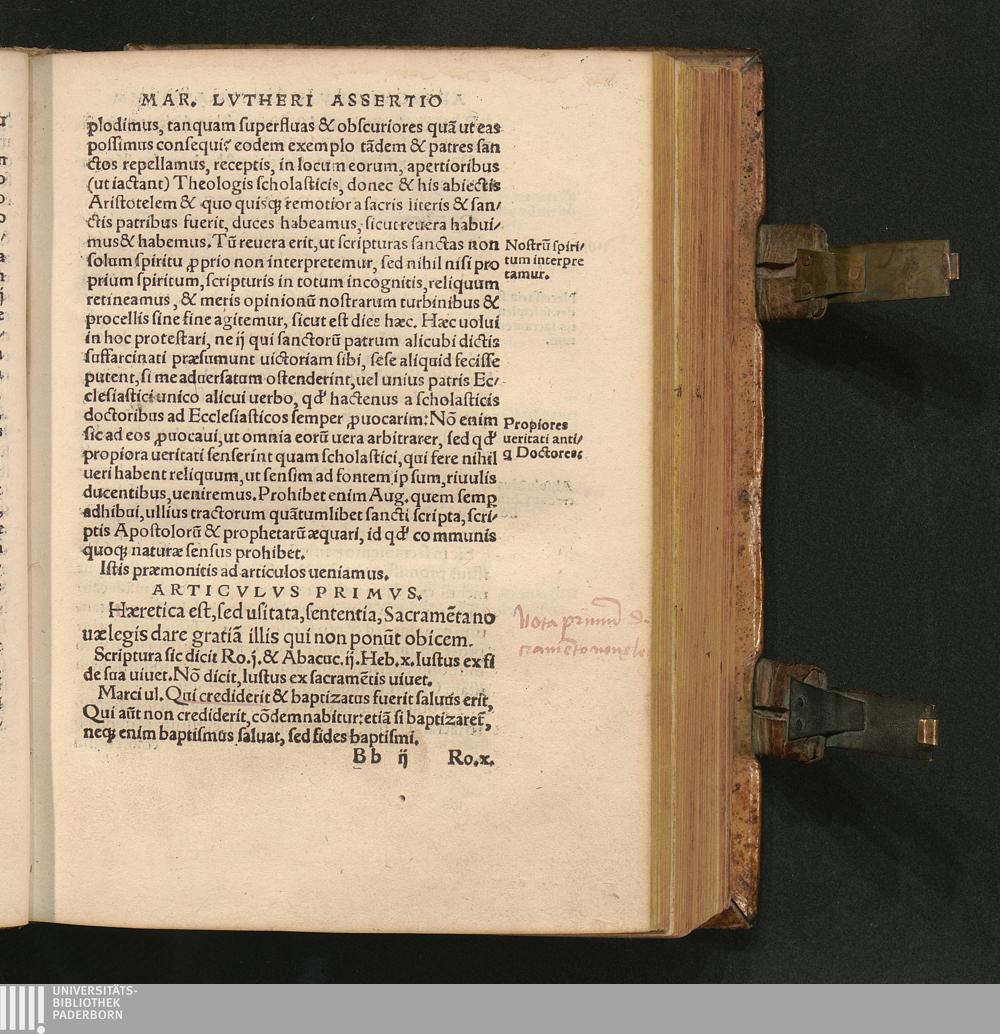 MAR. LVTHERI ASSERTIO
plodimus, tanquam superfluas & obscuriores quã ut eas
possimus consequi? eodem exemplo tãdem & patres san
ctos repellamus, receptis, in locum eorum, apertioribus
(ut iactant) Theologis scholasticis, donec & his abiectis
Aristotelem & quo quisqꝫ remotior a sacris literis & san/
ctis patribus fuerit, duces habeamus, sicut reuera habui/
mus & habemus. Tũ reuera erit, ut scripturas sanctas non
solum spiritu ꝓprio non interpretemur, sed nihil nisi pro
prium spiritum, scripturis in totum incognitis, reliquum
retineamus, & meris opinionũ nostrarum turbinibus &
procellis sine fine agitemur, sicut est dies hæc. Hæc uolui
in hoc protestari, ne ij qui sanctorũ patrum alicubi dictis
suffarcinati præsumunt uictoriam sibi, sese aliquid fecisse
putent, si me aduersatum ostenderint, uel unius patris Ec/
clesiastici unico alicui uerbo, qđ hactenus a scholasticis
doctoribus ad Ecclesiasticos semper ꝓuocarim: Nõ enim
sic ad eos ꝓuocaui, ut omnia eorũ uera arbitrarer, sed qđ
propiora ueritati senserint quam scholastici, qui fere nihil
ueri habent reliquum, ut sensim ad fontem ipsum, riuulis
ducentibus, ueniremus. Prohibet enim Aug. quem semꝑ
adhibui, ullius tractorum quãtumlibet sancti scripta, scri/
ptis Apostolorũ & prophetarũ æquari, id qđ communis
quoqꝫ naturæ sensus prohibet.
Istis præmonitis ad articulos ueniamus.
ARTICVLVS PRIMVS.
Hæretica est, sed usitata, sententia, Sacramẽta no
uæ legis dare gratiã illis qui non ponũt obicem.
Scriptura sic dicit Ro.j. & Abacuc.ij. Heb.x. Iustus ex fi
de sua uiuet. Nõ dicit, Iustus ex sacramẽtis uiuet.
Marci ul. Qui crediderit & baptizatus fuerit saluus erit,
Qui aũt non crediderit, cõdemnabitur: etiã si baptizareť,
neqꝫ enim baptismus saluat, sed fides baptismi.
Bb ij Ro.x.
Nostrũ spiri/
tum interpre
tamur.
Propiores
ueritati anti/
q Doctores:
Nota primũ
UNIVERSITÄTS-
BIBLIOTHEK
PADERBORN